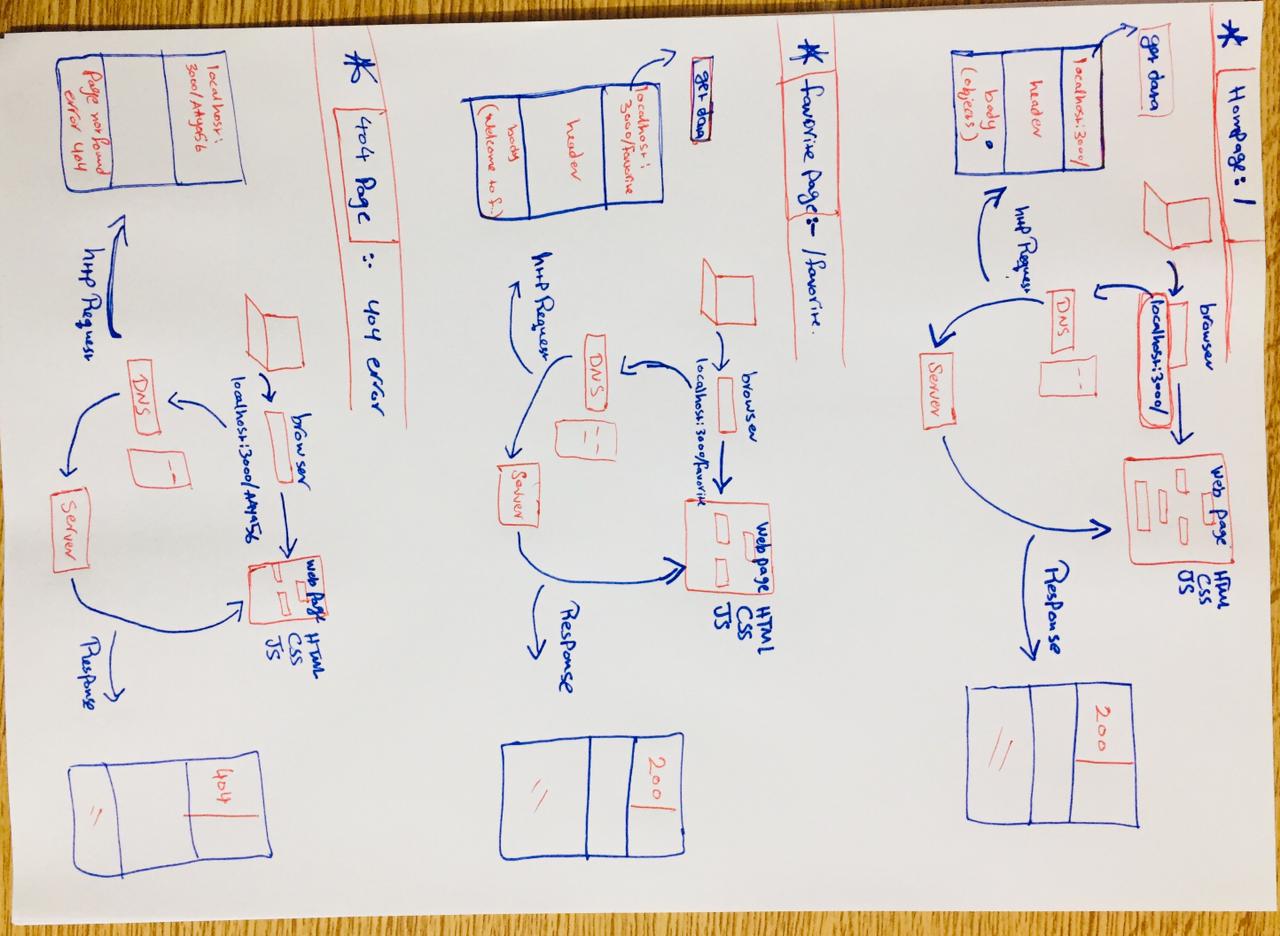 * HomPage:- /
get data
localhost:3000/
header
body
(objects)
http Request
browser
localhost:3000/
DNS
Server
Web page
HTML
CSS
JS
Response
200
* favorite page:- /favorite.
get data
localhost:
3000/favorite
header
body
(Welcome to f..)
http Request
browser
localhost:3000/favorite
DNS
Server
Web page
HTML
CSS
JS
Response
200
* 404 Page :- 404 error
localhost:
3000/AAya56
Page not found
error 404
http Request
browser
localhost:3000/AAya56
DNS
Server
Web Page
HTML
CSS
JS
Response
404